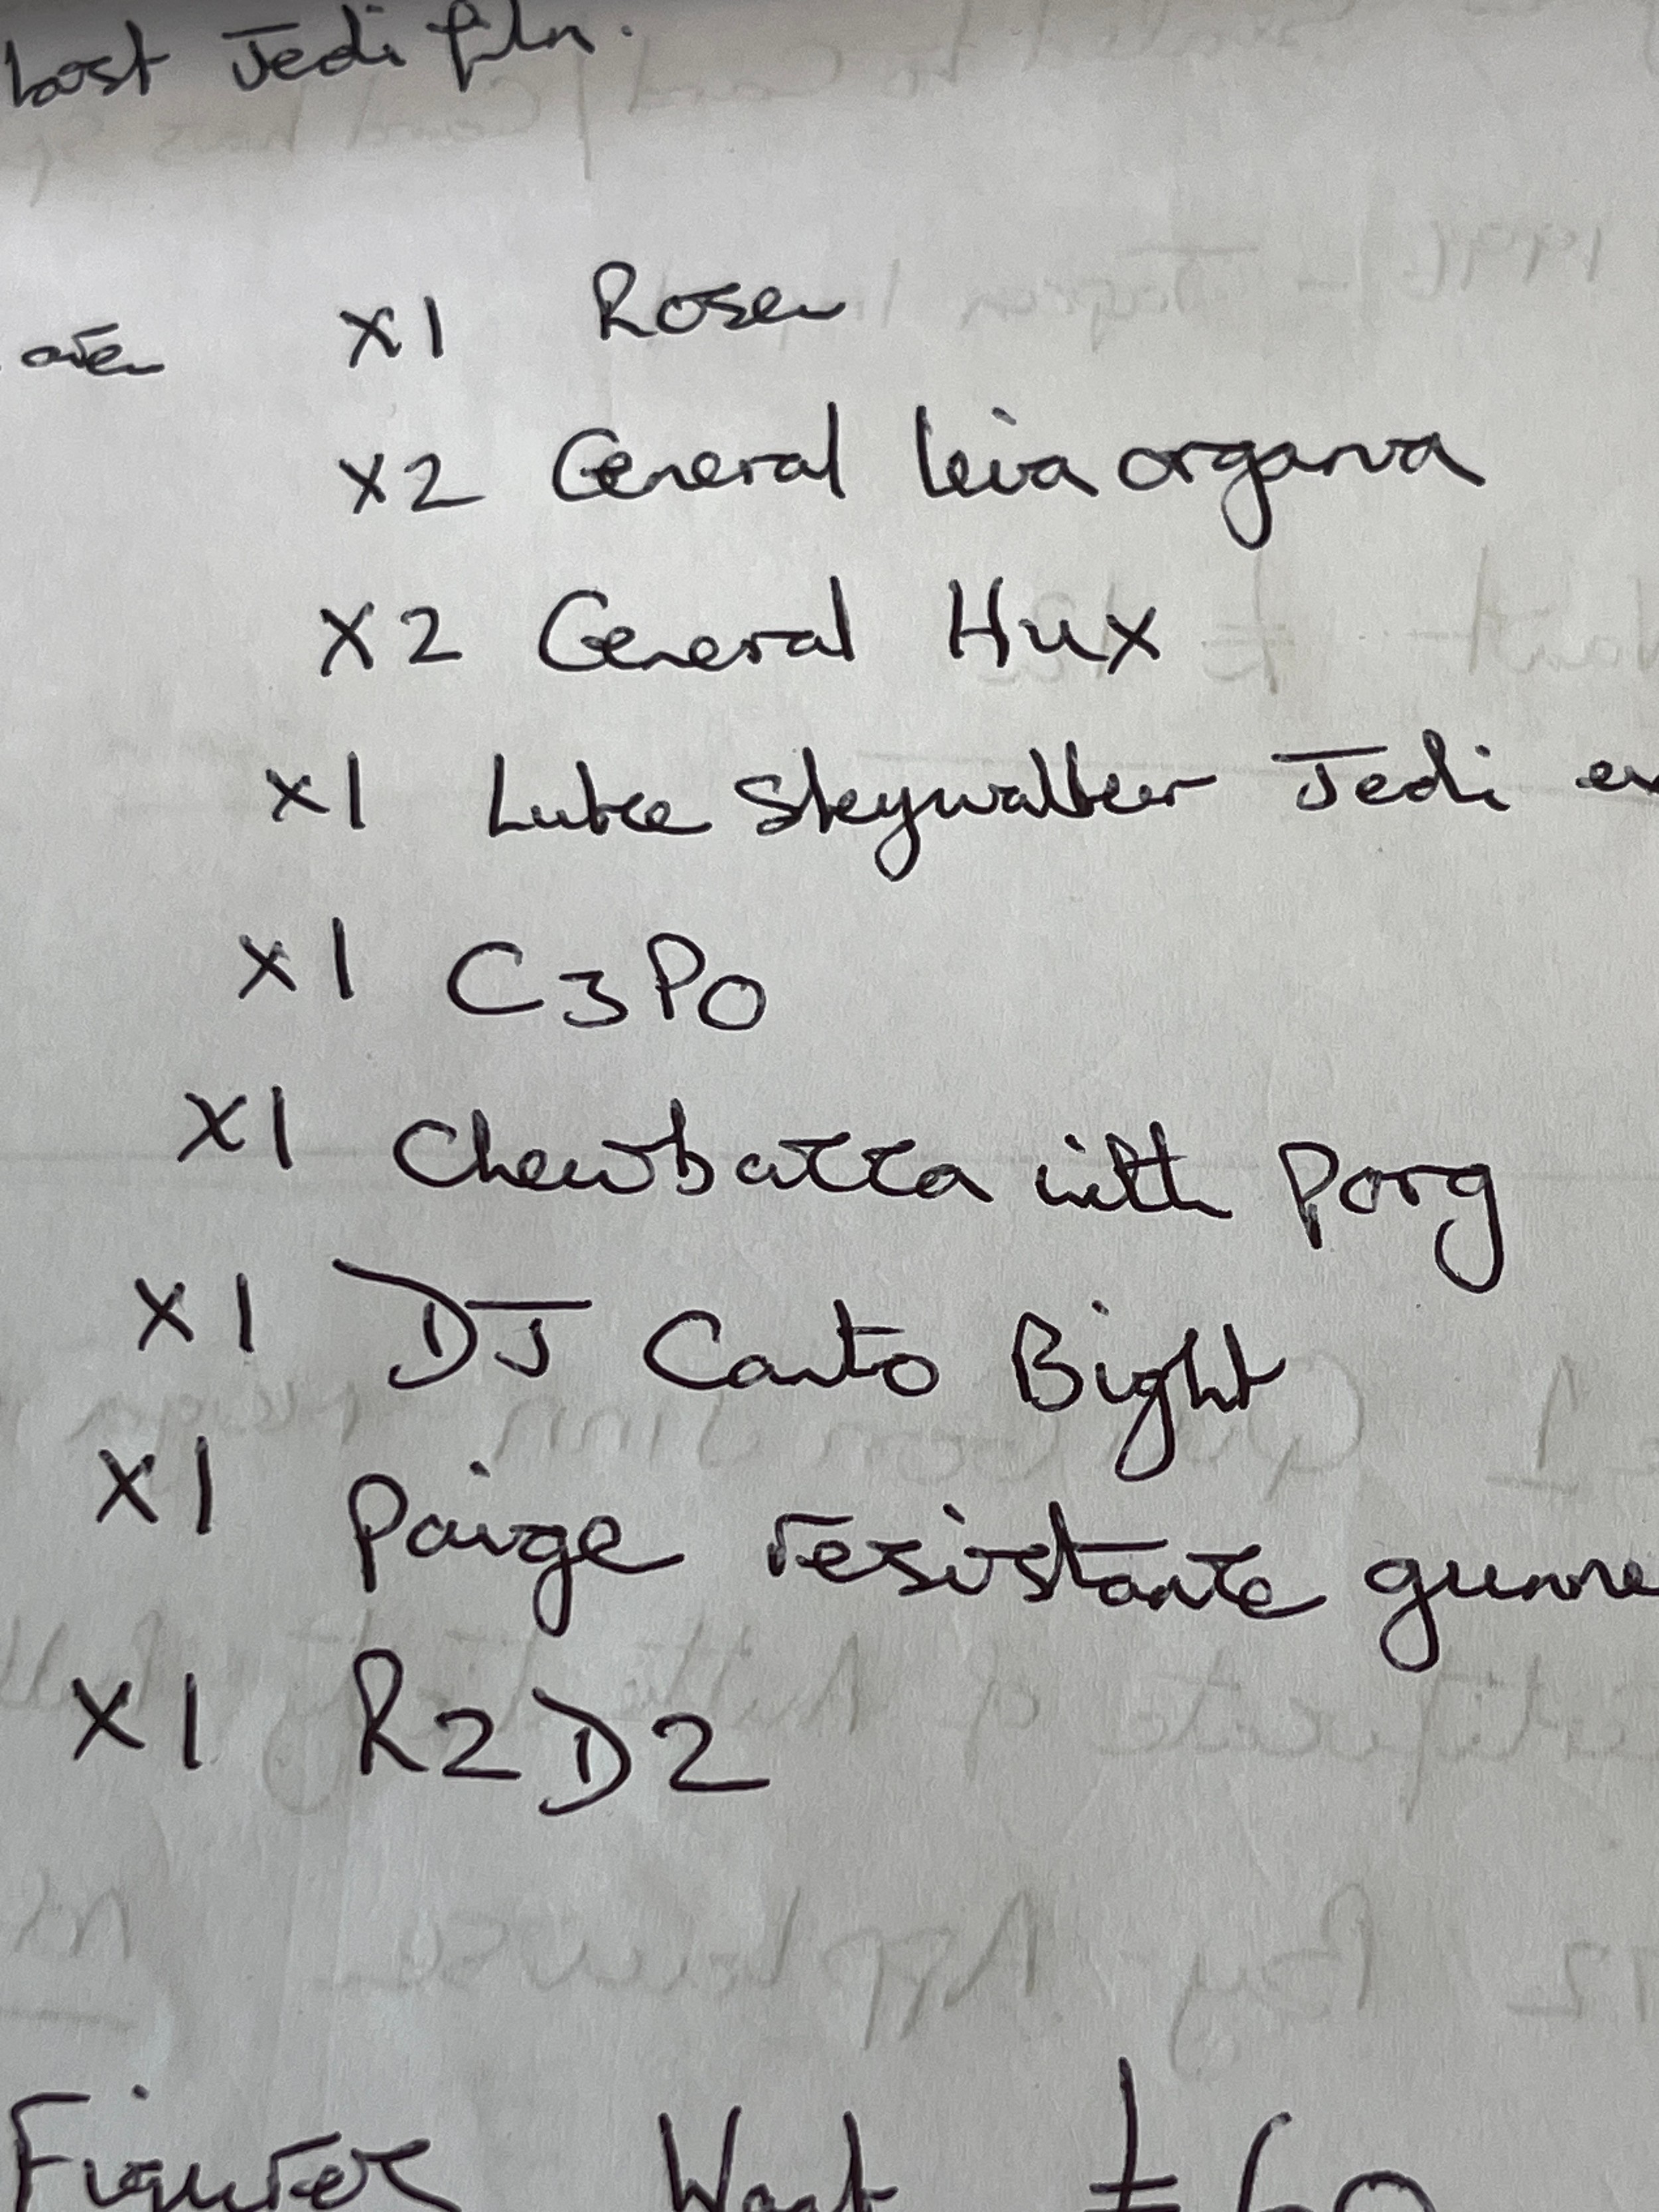 Last Jedi film.
x1 Rose
x2 General leia organa
x2 General Hux
x1 Luke Skywalker Jedi
x1 C3PO
x1 Chewbacca with Porg
x1 DJ Canto Bight
x1 Paige resistance gunne
x1 R2D2
Figures Want £60